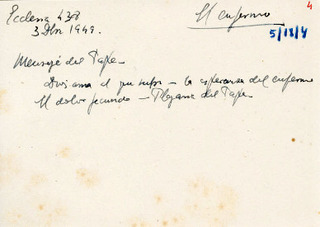 4
Ecclesia 438
3 Dbre 1949.
El enfermo
5/18/4
Mensaje del Papa.
al que sufre - la esperanza del enfermo
El dolor fecundo - Plegaria del Papa.